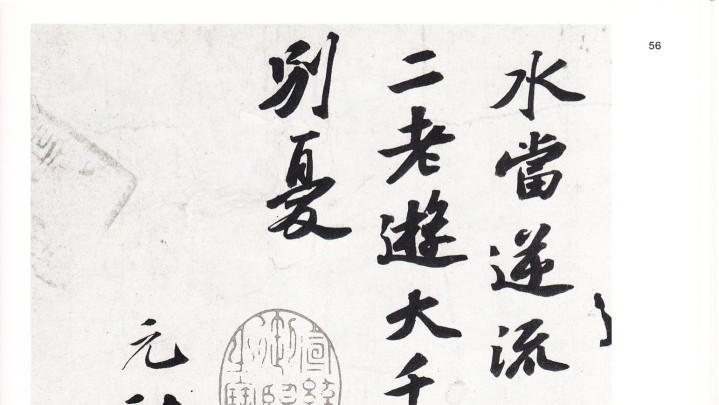 56
水當逆流
二老遊大千
別憂
元